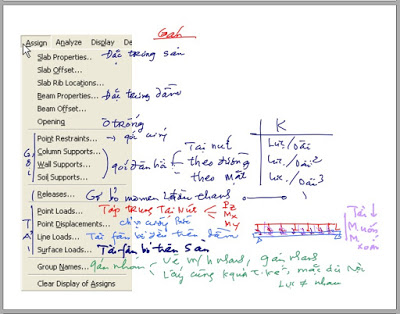 Gán
Assign Analyze Display De
Slab Properties... Đặc trưng sàn
Slab Offset...
Slab Rib Locations...
Beam Properties... Đặc trưng dầm
Beam Offset...
Opening Ô trống
Point Restraints... gối cứng
Column Supports... Tại nút
Wall Supports... gối đàn hồi theo đường
Soil Supports... theo mặt
K
Lực/Dài
Lực/Dài²
Lực/Dài³
Releases... Gỡ bỏ momen
Point Loads... Tập trung Tại Nút Pz
Mx
My
Point Displacements... Ch.v cưỡng bức
Line Loads... Tải phân bố trên dầm
Surface Loads... Tải phân bố trên Sàn
Tải
M uốn
M xoắn
Group Names... gán nhóm
Lấy cùng kquả t.kế, mặc dù Nội
Lực ≠ nhau
Clear Display of Assigns